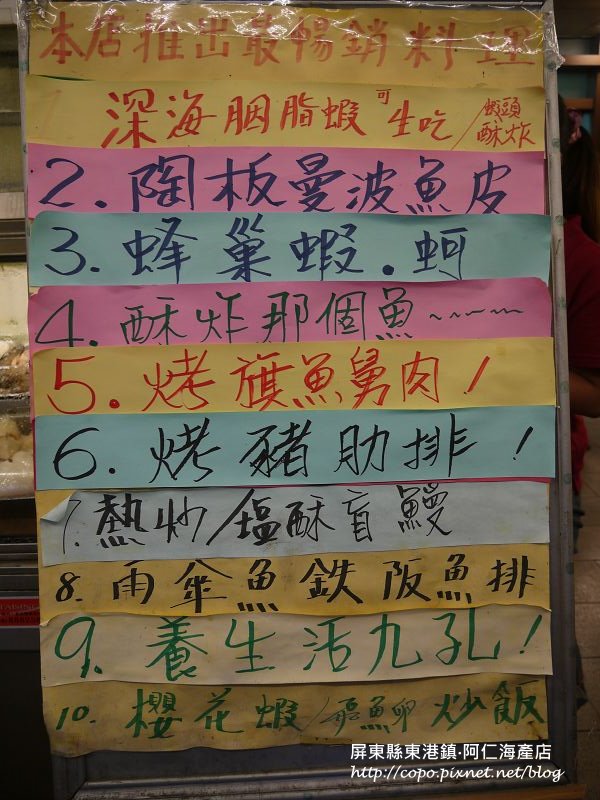 本店推出最暢銷料理
1. 深海胭脂蝦可生吃/蝦頭酥炸
2. 陶板曼波魚皮
3. 蜂巢蝦.蚵
4. 酥炸那個魚~~~~
5. 烤旗魚舅肉!
6. 烤豬肋排!
7. 熱炒/塩酥盲鰻
8. 雨傘魚鉄阪魚排
9. 養生活九孔!
10. 櫻花蝦/飛魚卵炒飯
屏東縣東港鎮‧阿仁海產店
http://copo.pixnet.net/blog